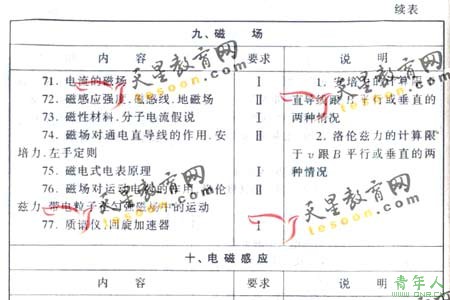 续表
九、磁 场
内 容 要求 说 明
71. 电流的磁场 Ⅰ 1. 安培力的计算限
72. 磁感应强度.磁感线.地磁场 Ⅱ 直导线跟B平行或垂直的
73. 磁性材料.分子电流假说 Ⅰ 两种情况
74. 磁场对通电直导线的作用.安 Ⅱ 2. 洛伦兹力的计算限
培力.左手定则 于v跟B平行或垂直的两
75. 磁电式电表原理 Ⅰ 种情况
76. 磁场对运动电荷的作用.洛伦 Ⅱ
兹力.带电粒子在匀强磁场中的运动
77. 质谱仪.回旋加速器 Ⅰ
十、电磁感应
内 容 要求 说 明
天星教育网
tesoon.com
天星教育网
tesoon.com
天星教育网
tesoon.com
天星教育网
tesoon.com
青年人